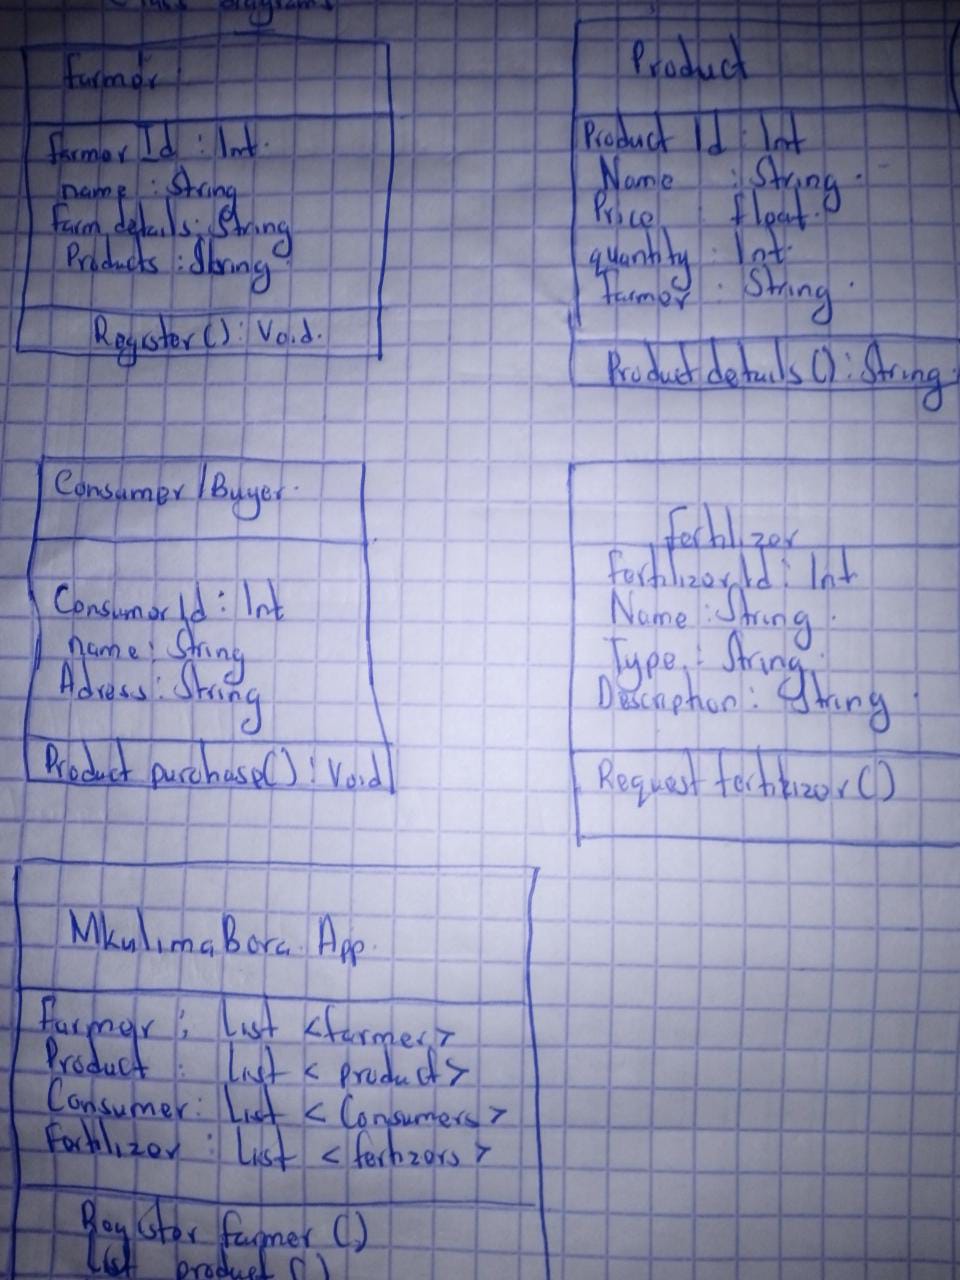 Class diagrams
Farmer
farmer Id : Int.
name : String
Farm details : String
Products : String
Register() : Void.
Product
Product Id : Int
Name : String.
Price : float.
quantity : Int.
farmer : String.
Product details () : String.
Consumer / Buyer.
Consumer Id : Int
name : String
Adress : String
Product purchase() : Void
Fertilizer
Fertilizer Id : Int
Name : String.
Type : String.
Description : String.
Request fertilizer ()
Mkulima Bora App.
Farmer : List <farmer>
Product : List < product >
Consumer : List < Consumers >
Fertilizer : List < fertizers >
Register farmer ()
List product ()